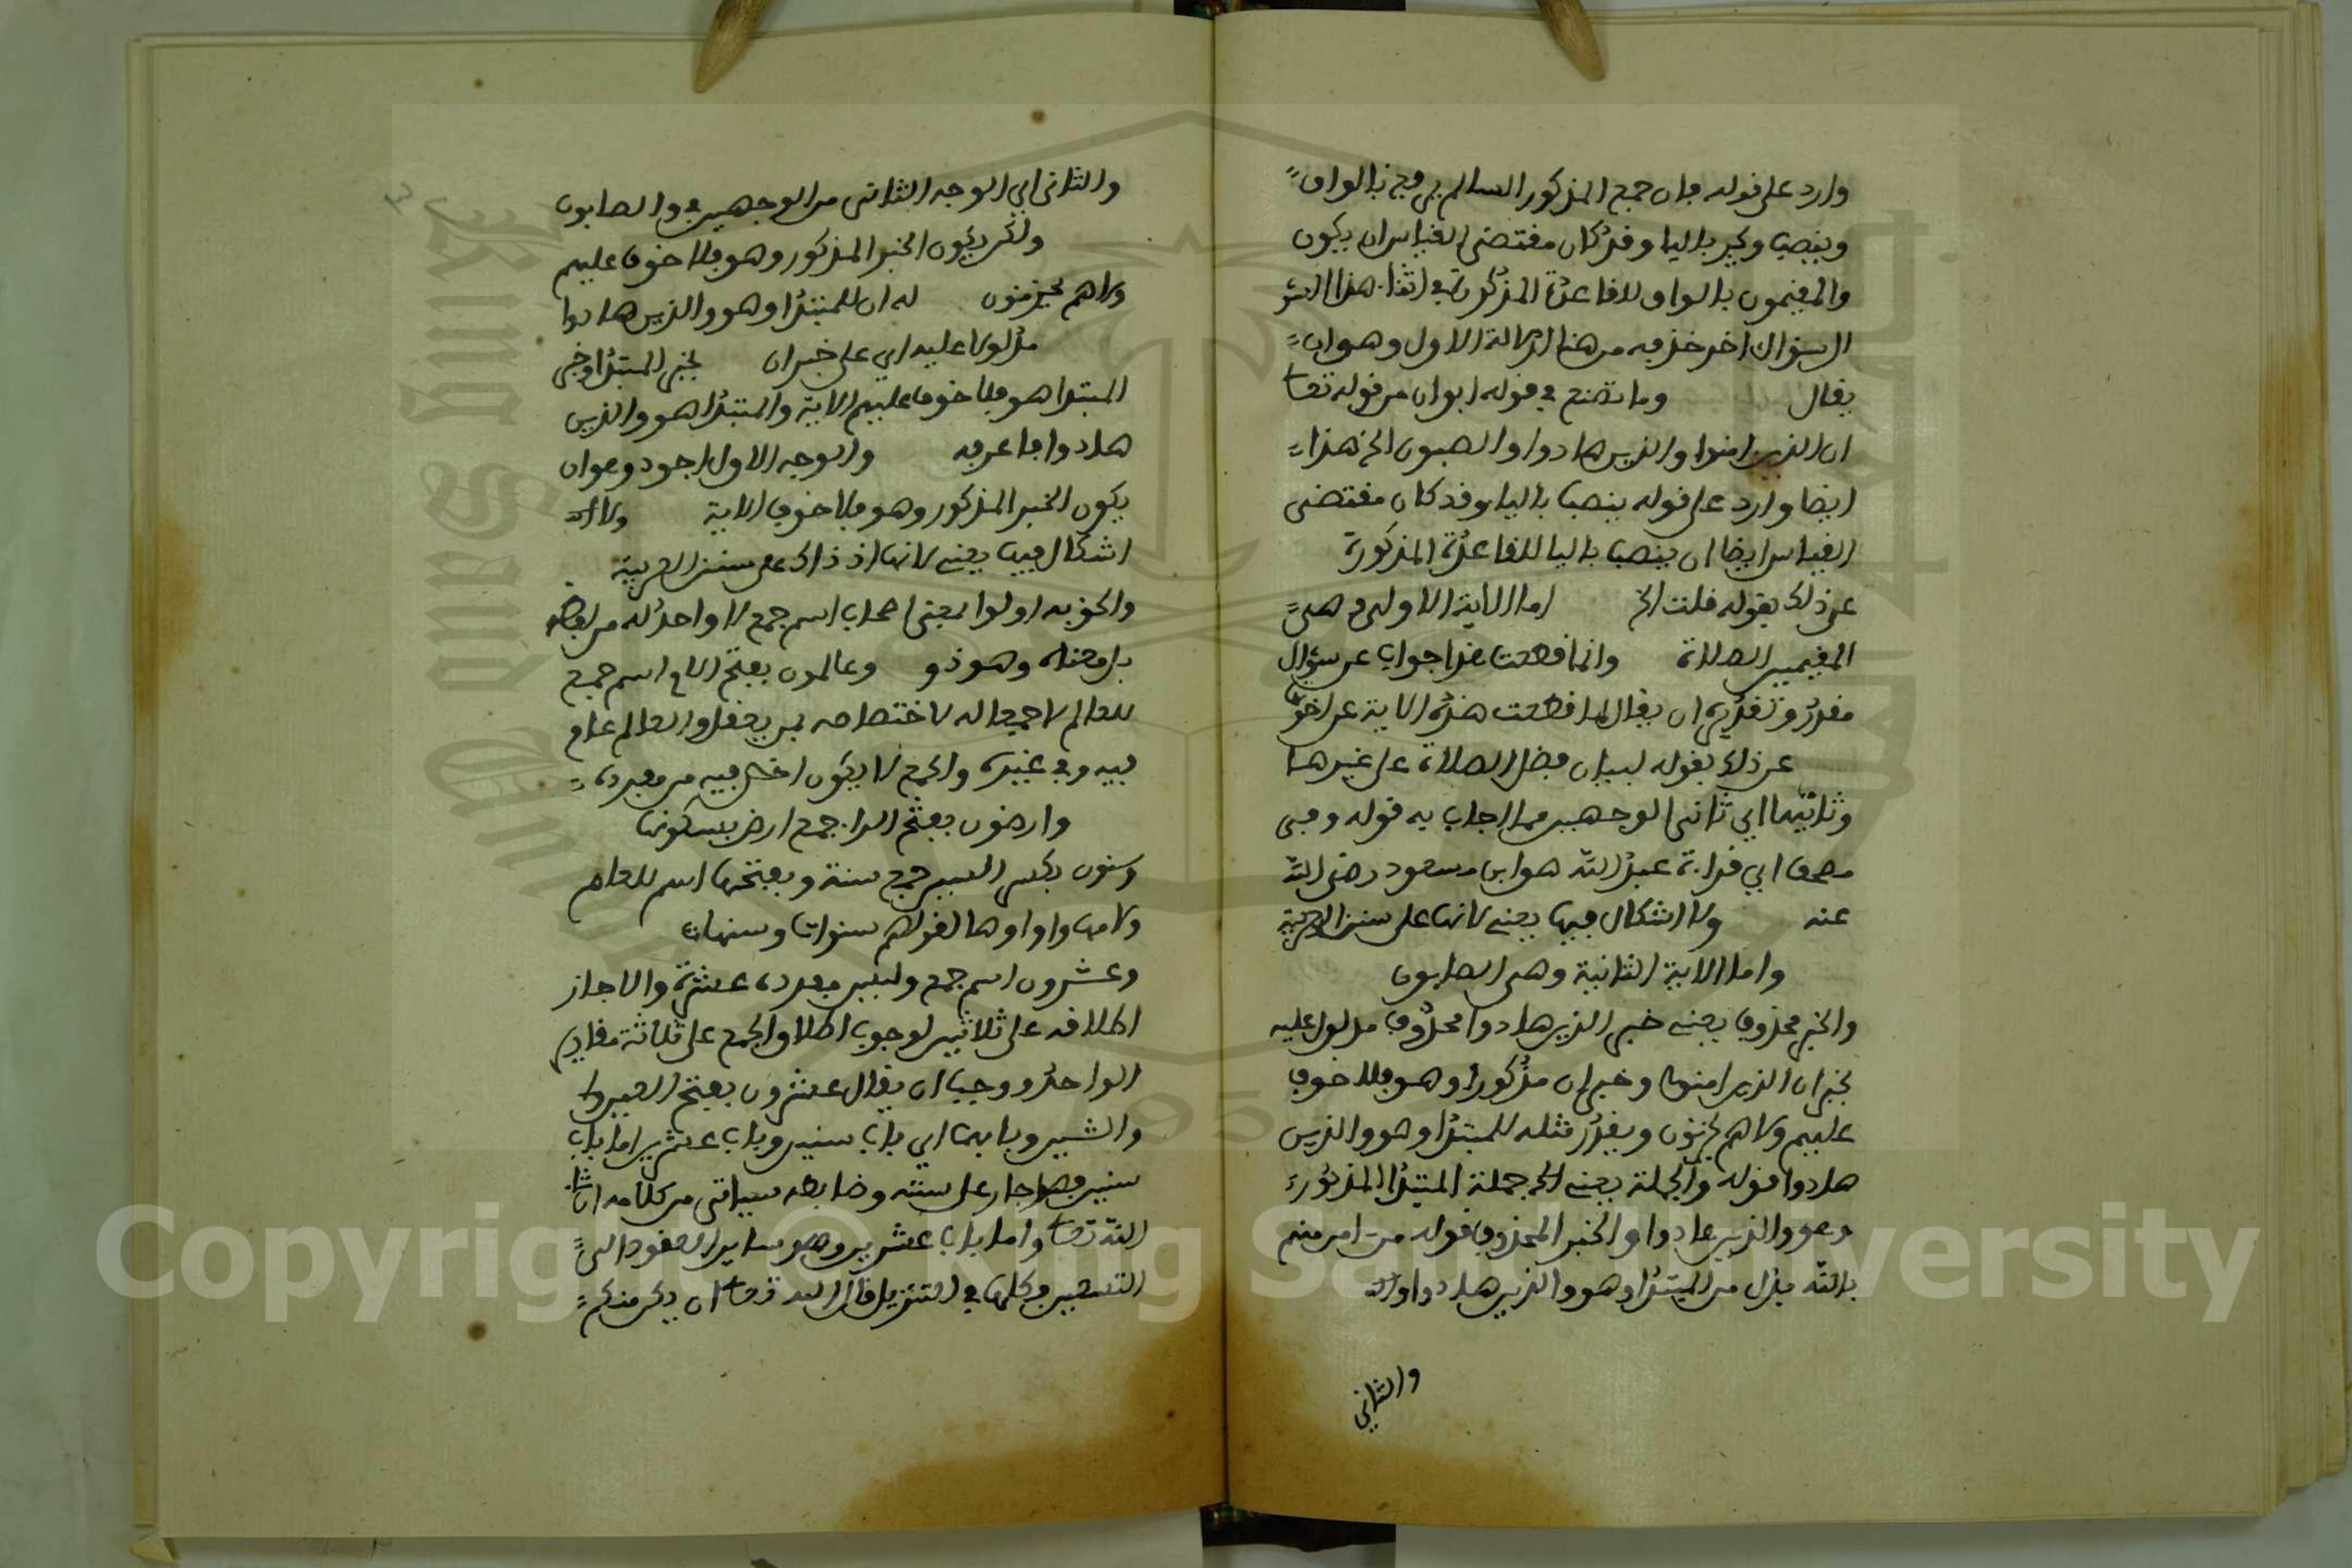 وارد على قوله فان جمع المذكور السالم يرفع بالواو
وينصب ويجر بالياء وقد كان مقتضى القياس ان يكون
والمقيمون بالواو للقاعدة المذكورة في اثناء هذا
السؤال اخر حذف من هنا لدلالة الاول وهو ان
يقال وما تصنع في قوله ابوان من قوله تعا
ان الذين امنوا والذين هادوا والصبون الخ هذا
ايضا وارد على قوله ينصب بالياء وقد كان مقتضى
القياس ايضا ان ينصب باليا للقاعدة المذكورة
عن ذلك بقوله قلت الخ اما الاية الاولى وهي
المقيمين الصلاة وانما قطعت هذا جواب عن سؤال
مقدر وتقديره ان يقال لما قطعت هذه الاية عن اخواتها
عن ذلك بقوله لبيان فضل الصلاة على غيرها
وثانيهما اي ثاني الوجهين مما اجاب به قوله وفي
مصحف اي قراءة عبد الله هو ابن مسعود رضي الله
عنه ولا اشكال فيها يعني لانها على سنن العربية
واما الاية الثانية وهي الصابون
والخبر محذوف يعني خبر الذين هادوا محذوف مدلول عليه
بخبر ان الذين امنوا وخبر ان مذكورا وهو فلا خوف
عليهم ولا هم يحزنون ويقدر مثله للمبتدا وهو والذين
هادوا قوله والجملة يعني الخ جملة المبتدا المذكورة
وهو والذين هادوا والخبر المحذوف قوله من امن منهم
بالله بدل من المبتدا وهو والذين هادوا
والثاني
والثاني اي الوجه الثاني من الوجهين في والصابون
ولكن يكون الخبر المذكور وهو فلا خوف عليهم
ولا هم يحزنون له ان للمبتدا وهو والذين هادوا
مدلولا عليه اي على خبر ان بخبر المبتدا وخبر
المبتدا هو فلا خوف عليهم الاية والمبتدا هو والذين
هادوا فاعرفه والوجه الاول اجود وهو ان
يكون الخبر المذكور وهو فلا خوف الاية ولا
اشكال فيها يعني لانها اذ ذاك على سنن العربية
والحق به اولوا بمعنى اصحاب اسم جمع لا واحد له من لفظه
بل معناه وهو ذو وعالمون بفتح اللام اسم جمع
للعالم لا جمعا له لاختصاصه بمن يعقل والعالم عام
فيه وفي غيره والجمع لا يكون اخص فيه من مفرده
وارضون بفتح الراء جمع ارض بسكونها
وسنون بكسر السين جمع سنة وبفتحها اسم للعام
ولامها واو او ها لقولهم سنوات وسنهات
وعشرون اسم جمع وليس مفرده عشرة والا جاز
اطلاقه على ثلاثين لوجوب اطلاق الجمع على ثلاثة مقادير
الواحد ووجب ان يقال عشرون بفتح العين
والشين وبابهما اي باب سنين وباب عشرين اما باب
سنين فهو جار على سننه وضابطه سياتي من كلامه ان شاء
الله تعا واما باب عشرين وهو ساير العقود الى
التسعين وكلها في التنزيل قال الله تعا ان يكن منكم